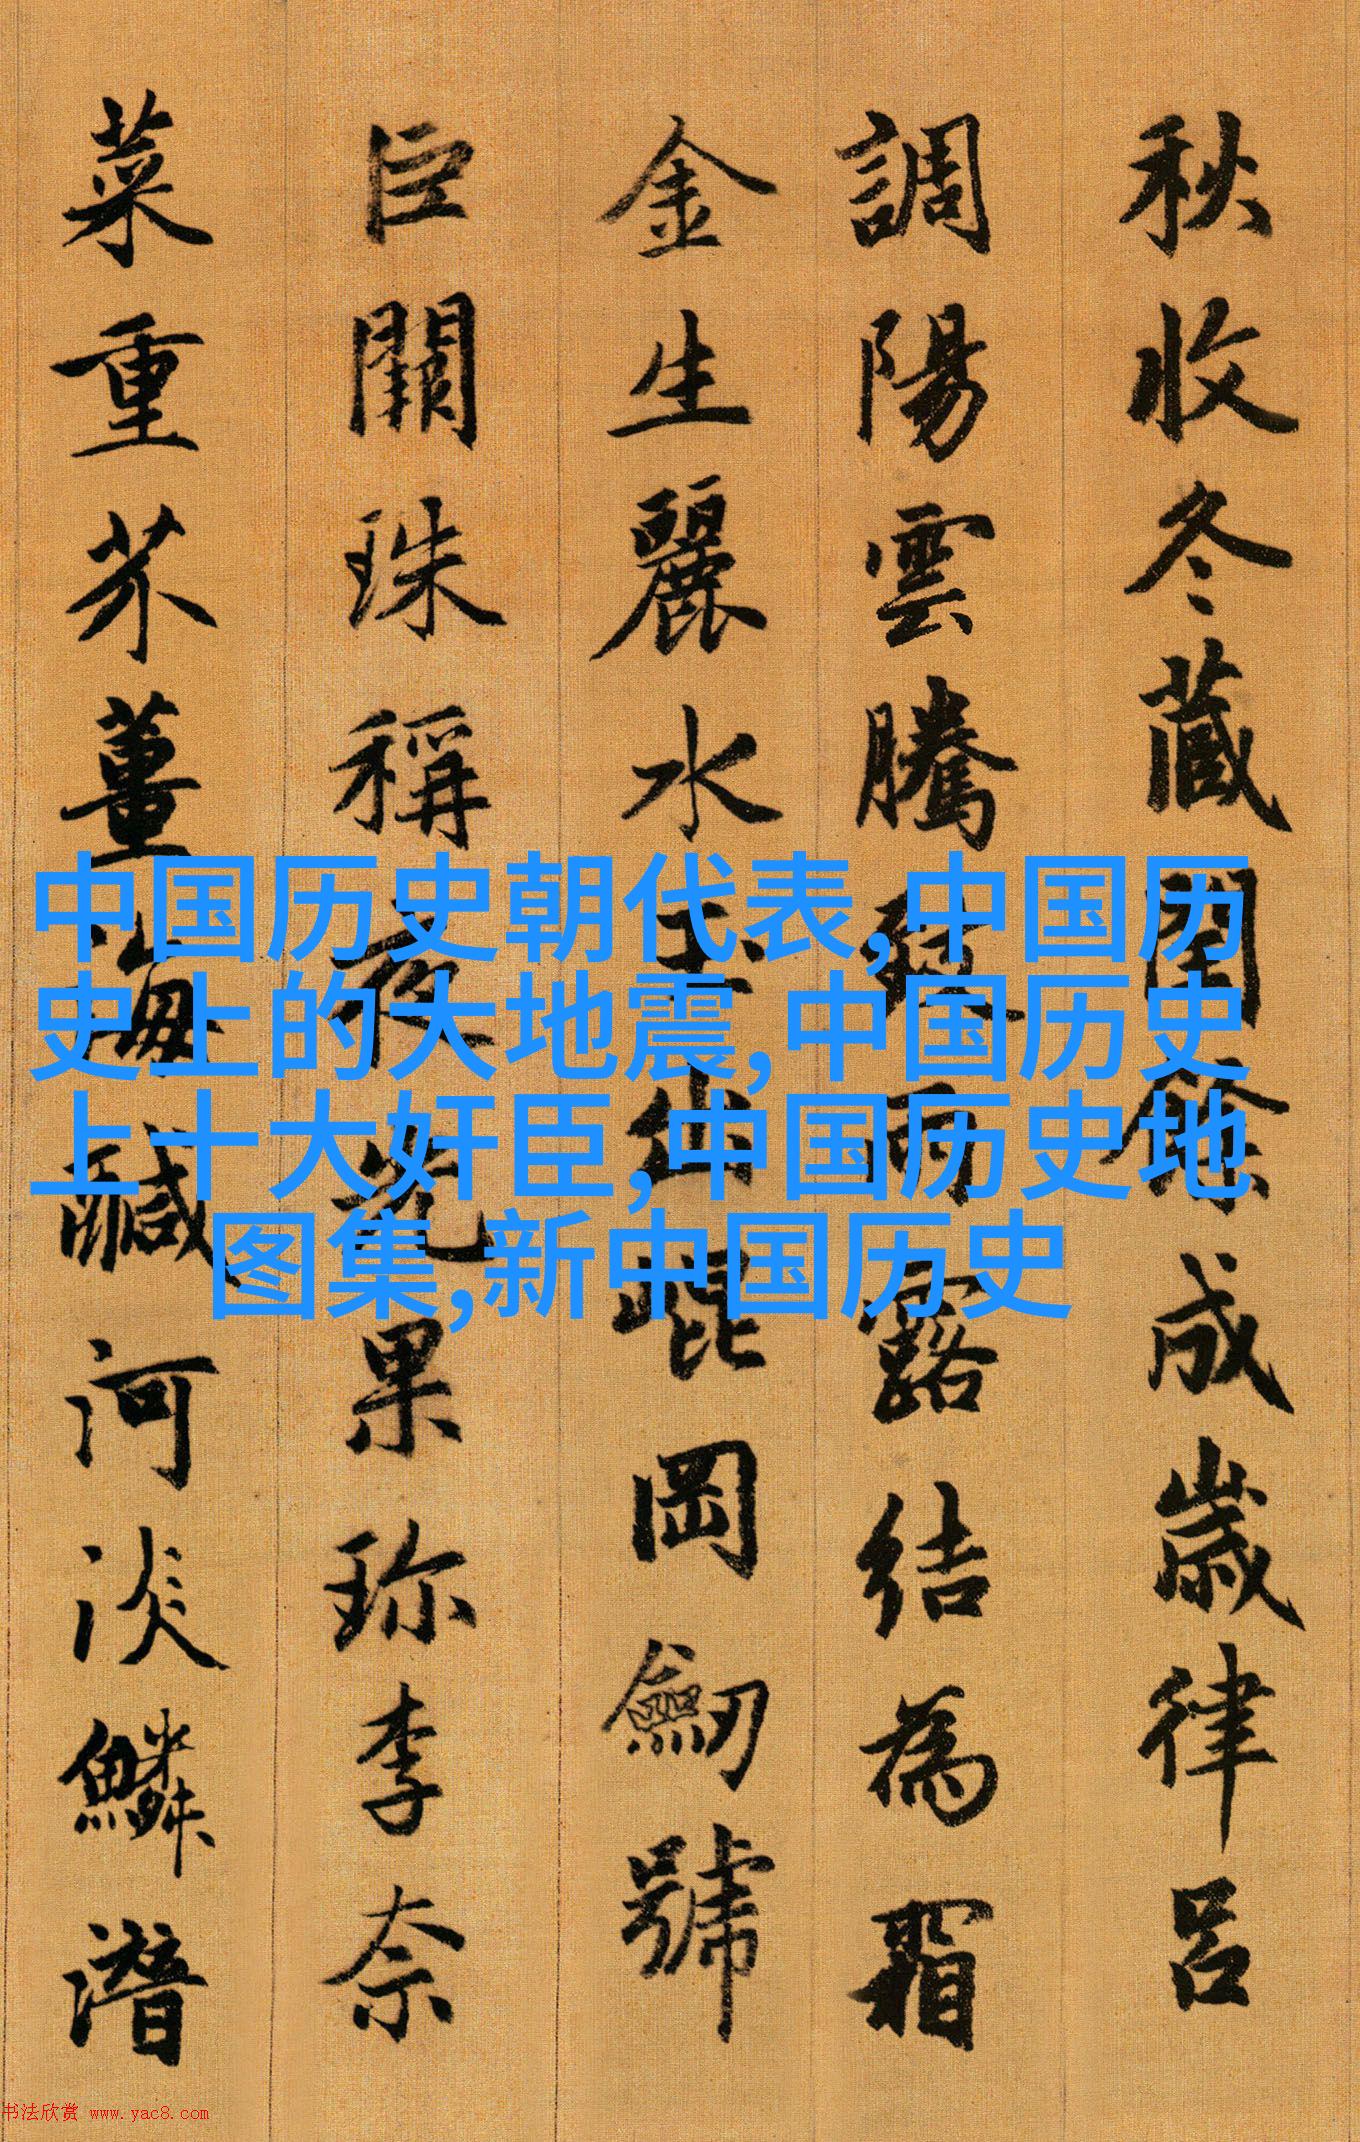 秋收冬藏閏餘成歲律呂
調陽雲騰致雨露結為霜
金生麗水玉出崐岡劒號
巨闕珠稱夜光果珎李奈
菜重芥薑海鹹河淡鱗潛
中国历史朝代表,中国历
史上的大地震,中国历史
上十大奸臣,中国历史地
图集,新中国历史
书法欣赏 www.yac8.com